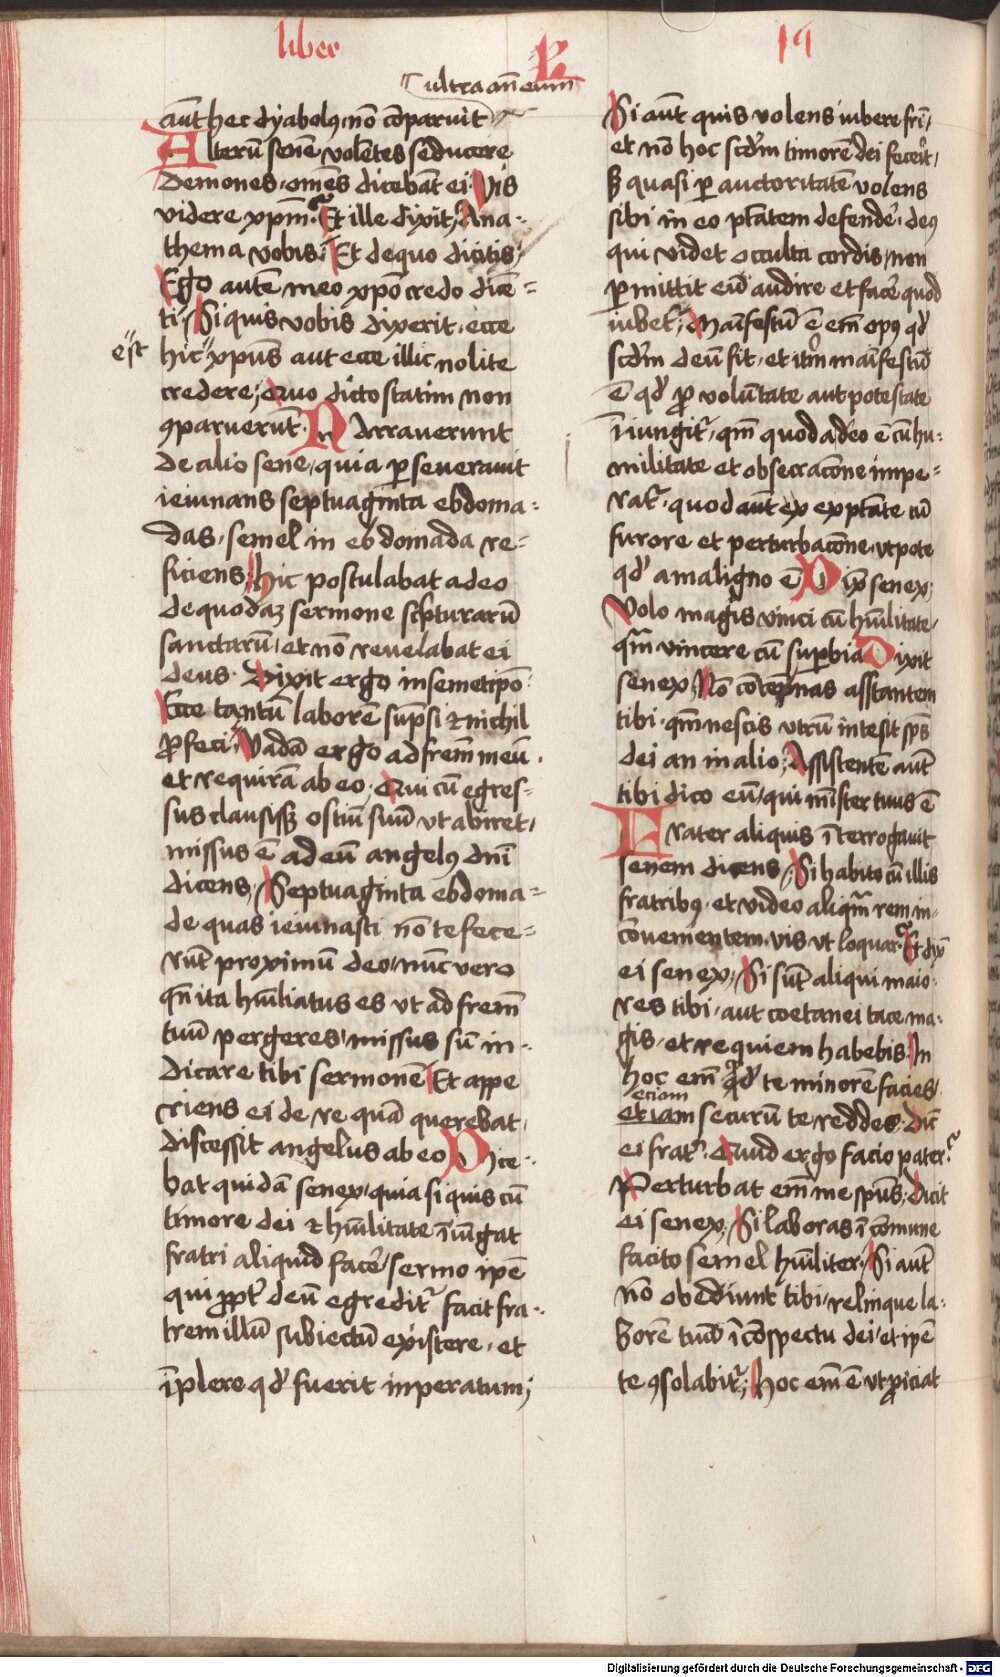 liber
R
19
ultra an̄ eum
aut̄ hec dyabolꝰ nō cōparuit
Alterū senē volētes seducere
demones, om̄es dicebāt ei. Vis
videre xpm̄? Et ille dixit, Ana-
thema vobis. Et de quo dicitis.
Ego autē meo xpō credo dicē-
ti, Si quis vobis dixerit, ecce
est
hic xpūs aut ecce illic nolite
credere; Quo dicto statim non
ꝯparuerūt. Narraverunt
de alio sene, quia ꝑseuerauit
ieiunans septuaginta ebdoma-
das, semel in ebdomada re-
ficiens, hic postulabat a deo
de quodaꝫ sermone scpturarū
sanctarū, et nō reuelabat ei
deus. Dixit ergo in semetipō
Ecce tantū laborē sūpsi et nichil
ꝓfeci, Vadā ergo ad frēm meū
et requirā ab eo. Qui cū egres-
sus clausissꝫ ostiū suū ut abiret,
missus ē ad eū angelꝰ dnī
dicens, Septuaginta ebdoma-
de quas ieiunasti nō te fece-
rūt proximū deo, nūc vero
qn̄ ita hūiliatus es ut ad frēm
tuū pergeres, missus sū in-
dicare tibi sermonē Et appe
riens ei de re quā querebat,
discessit angelus ab eo Dice-
bat quidā senex, quia si quis cū
timore dei et hūilitate īiūgat
fratri aliquid facē, sermo ipē
qui ꝓpt̄ deū egredit̄ facit fra-
trem illū subiectū existere, et
īplere qd̄ fuerit inperatum;
Si aut̄ quis volens iubere frī,
et nō hoc scdm̄ timorē dei fecerit,
sꝫ quasi ꝑ auctoritatē volens
sibi in eo ptātem defendē, deꝰ
qui videt occulta cordis, non
ꝑmittit eū audire et facē quod
iubet̄; Maīfestū ē em̄ opꝰ qd̄
scdm̄ deū fit, et itm̄ maīfestū
ē qd̄ ꝓ volūtate aut potestate
īiungit̄, qm̄ quod a deo ē cū hu-
militate et obsecracōne impe-
rat̄, quod aut̄ ex ex ptāte cū
furore et perturbacōne, utpote
qd̄ a maligno ē Dix̄ senex,
Volo magis vinci cū hūilitate,
qm̄ vincere cū suꝑbia Dixit
senex, Nō cōtēpnas assstantem
tibi, qm̄ nescis utrū in te sit spūs
dei an in alio, Assistentē aut̄
tibi dico eū, qui mīster tuus ē
Frater aliquis īterrogauit
senem dicens, Si habito cū illis
fratribꝰ, et video aliqm̄ rem in-
cōuenientem, vis ut loquar? Et dix̄
ei senex, Si sūt aliqui maio-
res tibi, aut coetanei tace ma-
gis, et requiem habebis. In
hoc em̄ qd̄ te minorē facies,
eciam
etiam securū te reddes. Dix̄
ei frat̄. Quid ergo facio pater?
Perturbat em̄ me spūs, Dicit
ei senex, Si laboras ī cōmune
facito semel hūiliter, Si aut̄
nō obediunt tibi, relinque la-
borē tuū ī cōspectu dei, et ipē
te ꝯsolabit̄; Hoc em̄ ē ut ꝓiciat
Digitalisierung gefördert durch die Deutsche Forschungsgemeinschaft - DFG